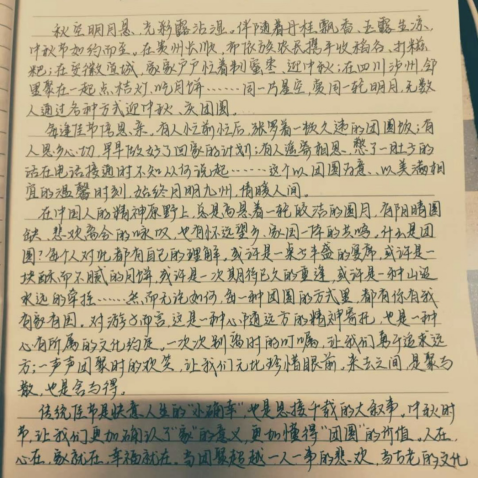 秋空明月悬,光彩露沾湿。伴随着丹桂飘香、玉露生凉,
中秋节如约而至。在贵州长顺,布依族农民携手收稻谷、打糍
粑;在安徽宣城,家家户户忙着制蜜枣,迎中秋;在四川泸州,邻
里聚在一起点桔灯、吃月饼……同一片星空,赏同一轮明月,无数
人通过各种方式迎中秋、庆团圆。
每逢佳节倍思亲。有人忙前忙后,张罗着一桌久违的团圆饭;有
人思乡心切,早早做好了回家的计划;有人遥寄相思,憋了一肚子的
话在电话接通时不知从何说起……这个以团圆为意、以美满相
宜的温馨时刻,始终月明九州,情暖人间。
在中国人的精神原野上,总是高悬着一轮皎洁的圆月,有阴晴圆
缺、悲欢离合的咏叹,也有怀远望乡、家国一体的共鸣。什么是团
圆?每个人对此都有自己的理解。或许是一桌子丰盛的宴席,或许是一
块酥而不腻的月饼,或许是一次期待已久的重逢,或许是一种山遥
水远的牵挂……然而无论如何,每一种团圆的方式里,都有你有我
有家有国。对游子而言,这是一种心随远方的精神寄托,也是一种
心有所属的文化约定。一次次别离时的叮嘱,让我们勇于追求远
方;一声声团聚时的欢笑,让我们尤比珍惜眼前。来去之间,是聚与
散,也是舍与得。
传统佳节是快意人生的“小确幸”,也是思接千载的大叙事。中秋时
节,让我们更加确认了“家”的意义,更加懂得“团圆”的价值。人在,
心在,家就在,幸福就在。当团聚超越一人一事的悲欢,当古老的文化